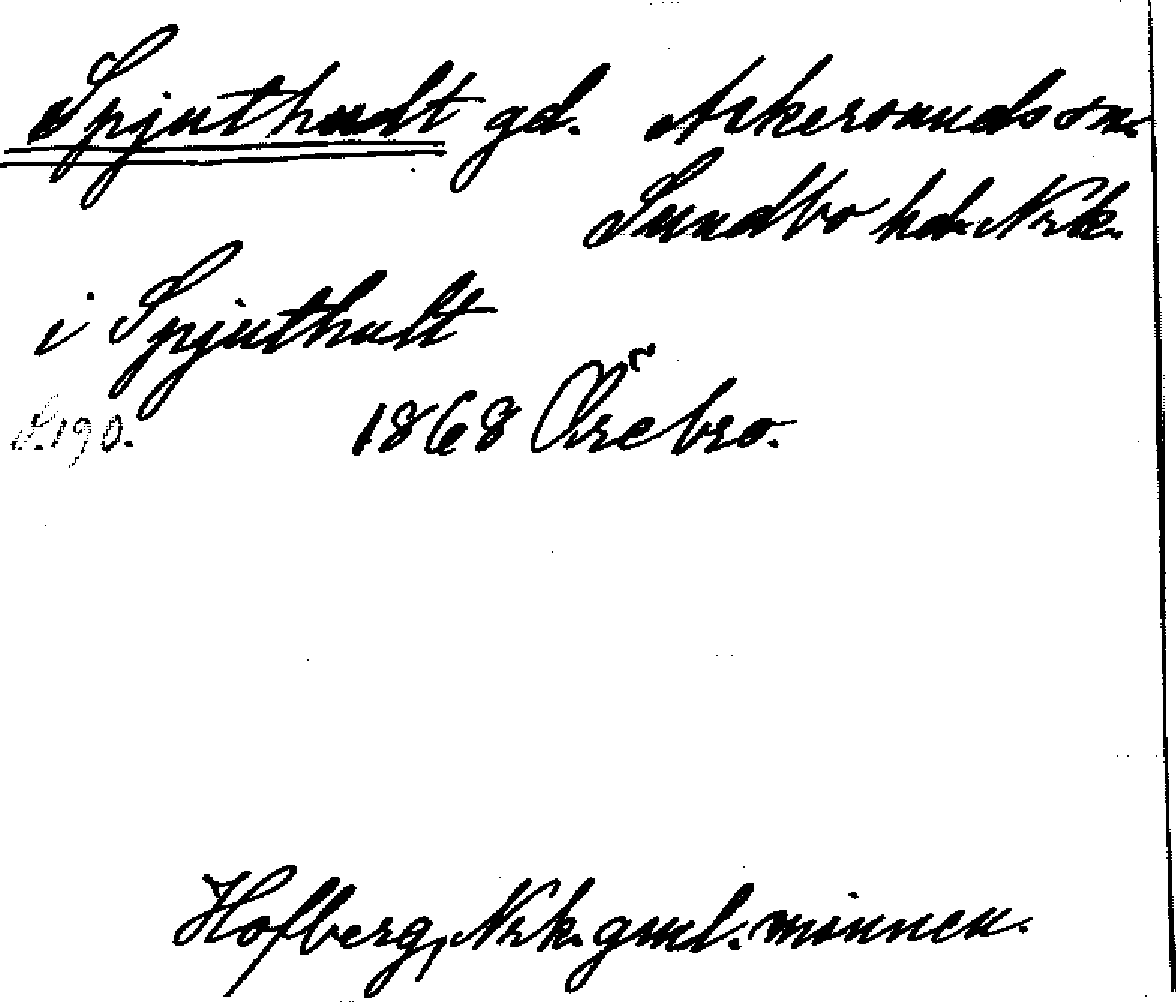 Spjuthult gd. Askersunds sn.
Sundbo hd. Nrk.
i Spjuthult
S. 190. 1868 Örebro.
Hofberg, Nrk. gml. minnen.